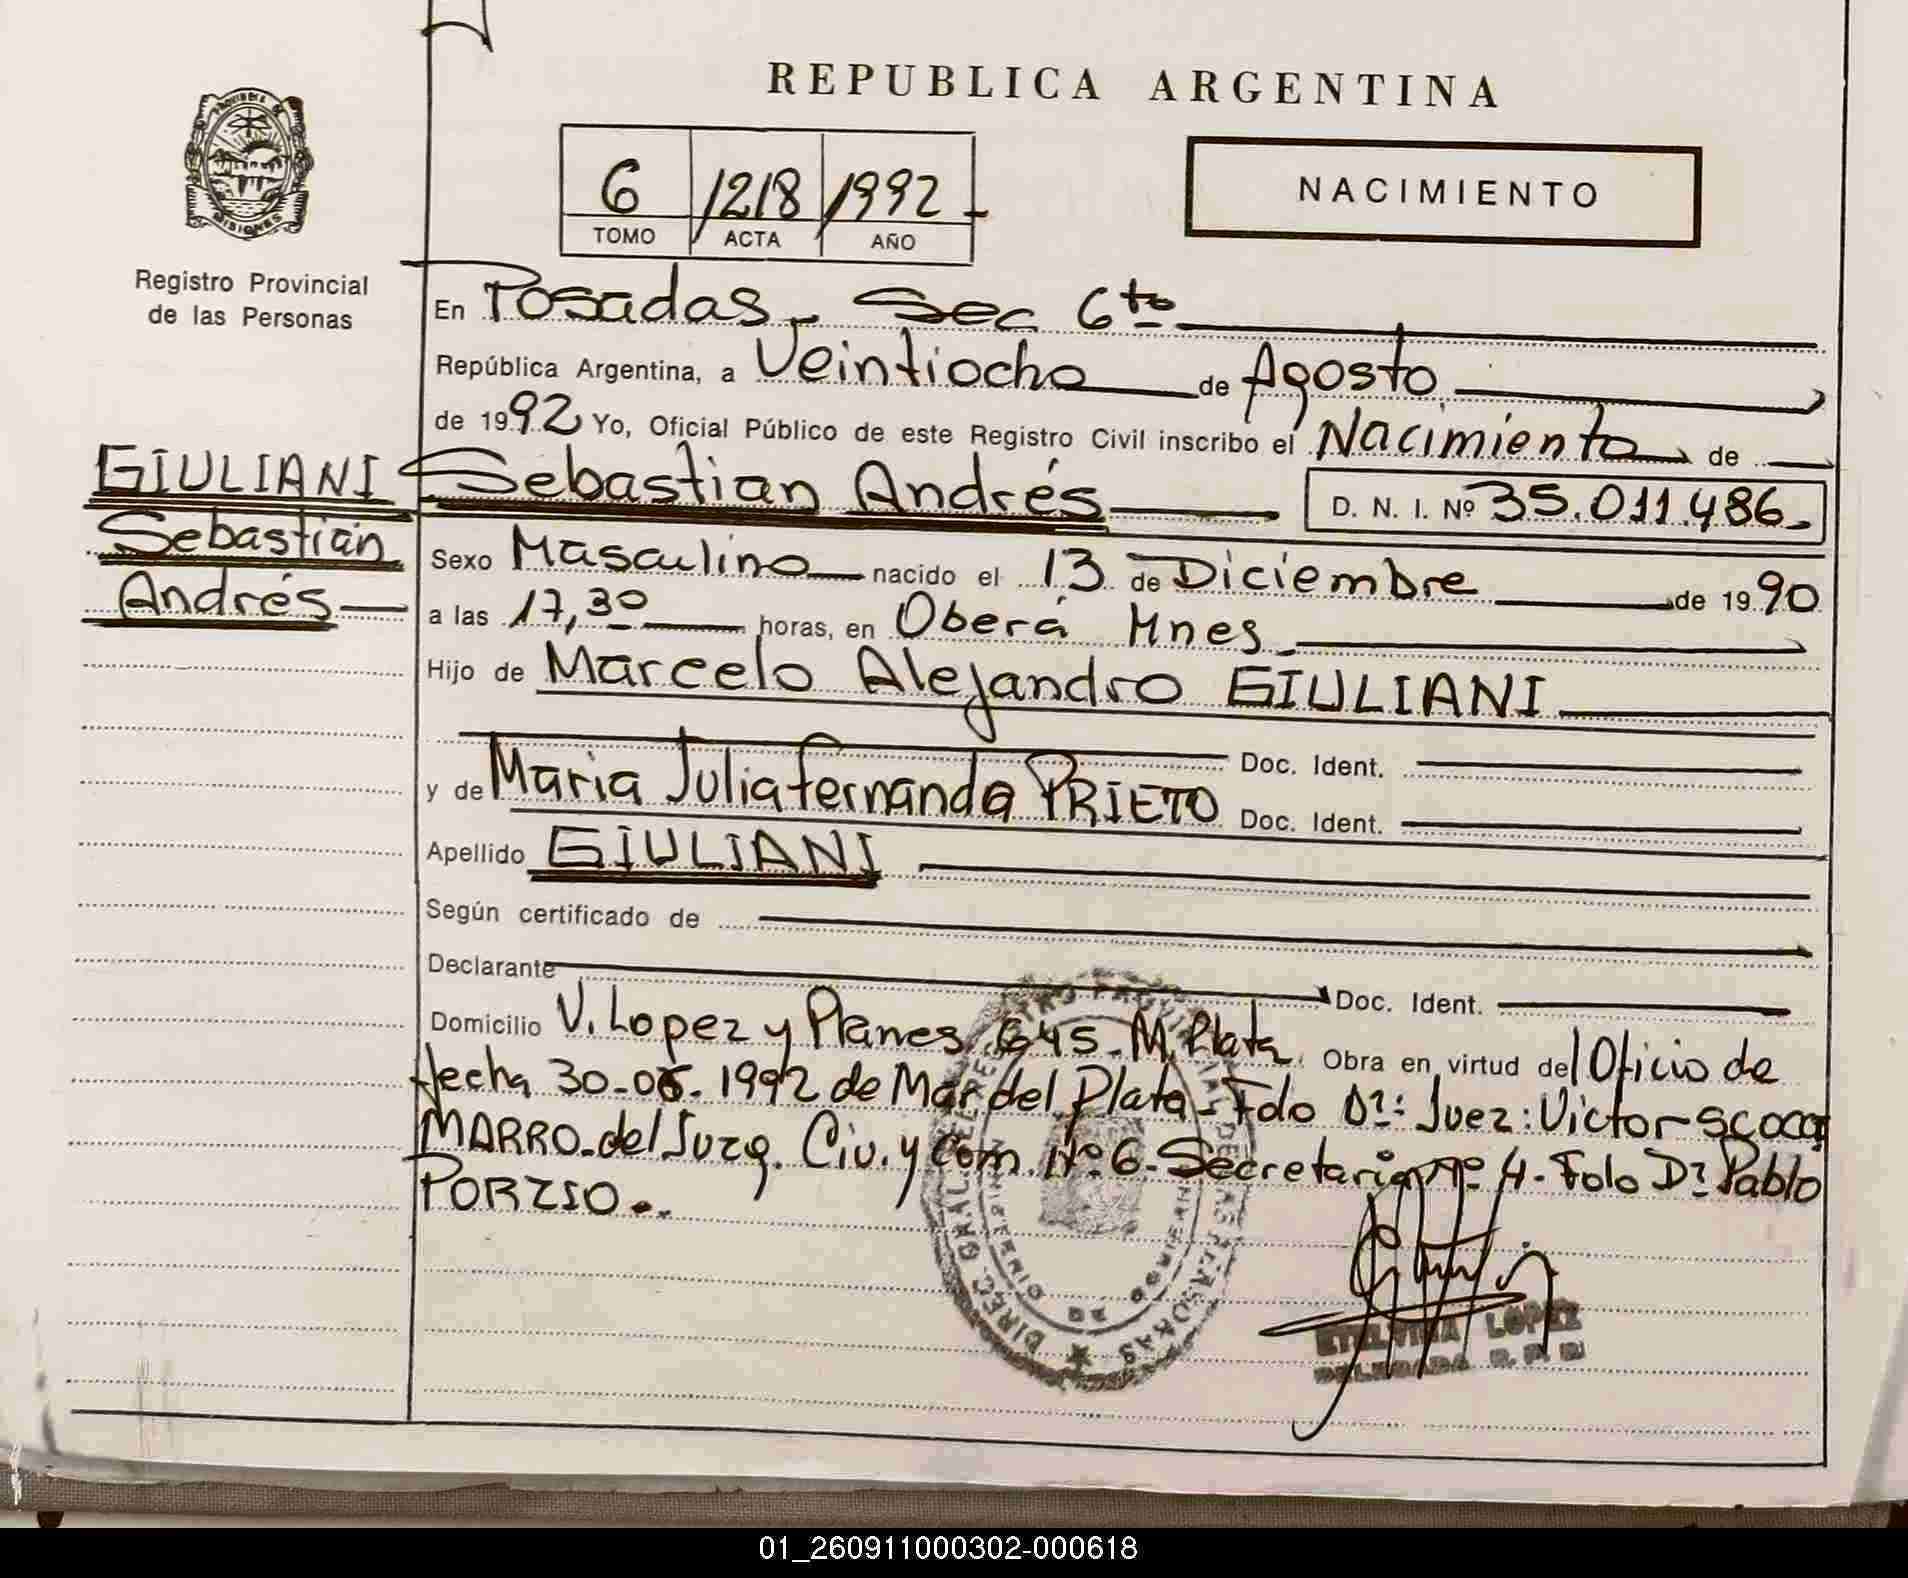 REPUBLICA ARGENTINA
PROVINCIA DE
MISIONES
Registro Provincial
de las Personas
6 1218 1992
TOMO ACTA AÑO
NACIMIENTO
En Posadas - Sec 6to
República Argentina, a Veintiocho de Agosto
de 1992 Yo, Oficial Público de este Registro Civil inscribo el Nacimiento de
GIULIANI
Sebastian
Andrés
Sebastian Andrés D. N. I. Nº 35.011.486
Sexo Masculino nacido el 13 de Diciembre de 1990
a las 17,30 horas, en Oberá Mnes
Hijo de Marcelo Alejandro GIULIANI
Doc. Ident.
y de Maria Julia Fernanda PRIETO Doc. Ident.
Apellido GIULIANI
Según certificado de
Declarante Doc. Ident.
Domicilio V. Lopez y Planes 645 - M. Plata Obra en virtud del Oficio de
fecha 30-06-1992 de Mar del Plata - Fdo Dr: Juez: Victor
MARRO - del Juzg. Civ. y Com. Nº 6 - Secretaria Nº 4 - Folo Dr Pablo
PORZIO.
DIREC. GRAL. PERSONAS
ETELVINA LOPEZ
DELEGADA R. P. P.
01_260911000302-000618